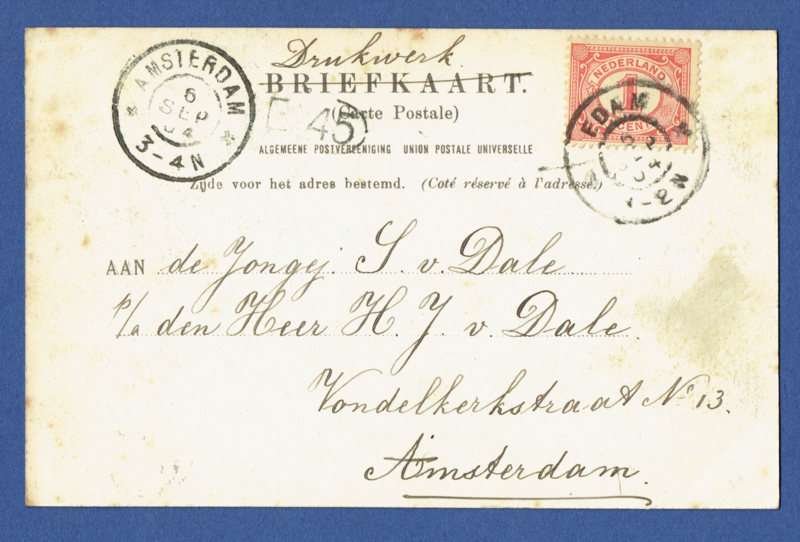 Drukwerk.
BRIEFKAART.
(Carte Postale)
ALGEMEENE POSTVEREENIGING UNION POSTALE UNIVERSELLE
Zijde voor het adres bestemd. (Coté réservé à l'adresse.)
AMSTERDAM
6
SEP
04
3-4N
45
NEDERLAND
1
CENT
EDAM
1-2N
AAN de Jongej. S. v. Dale
p/a den Heer H. J. v. Dale.
Vondelkerkstraat No 13.
Amsterdam.